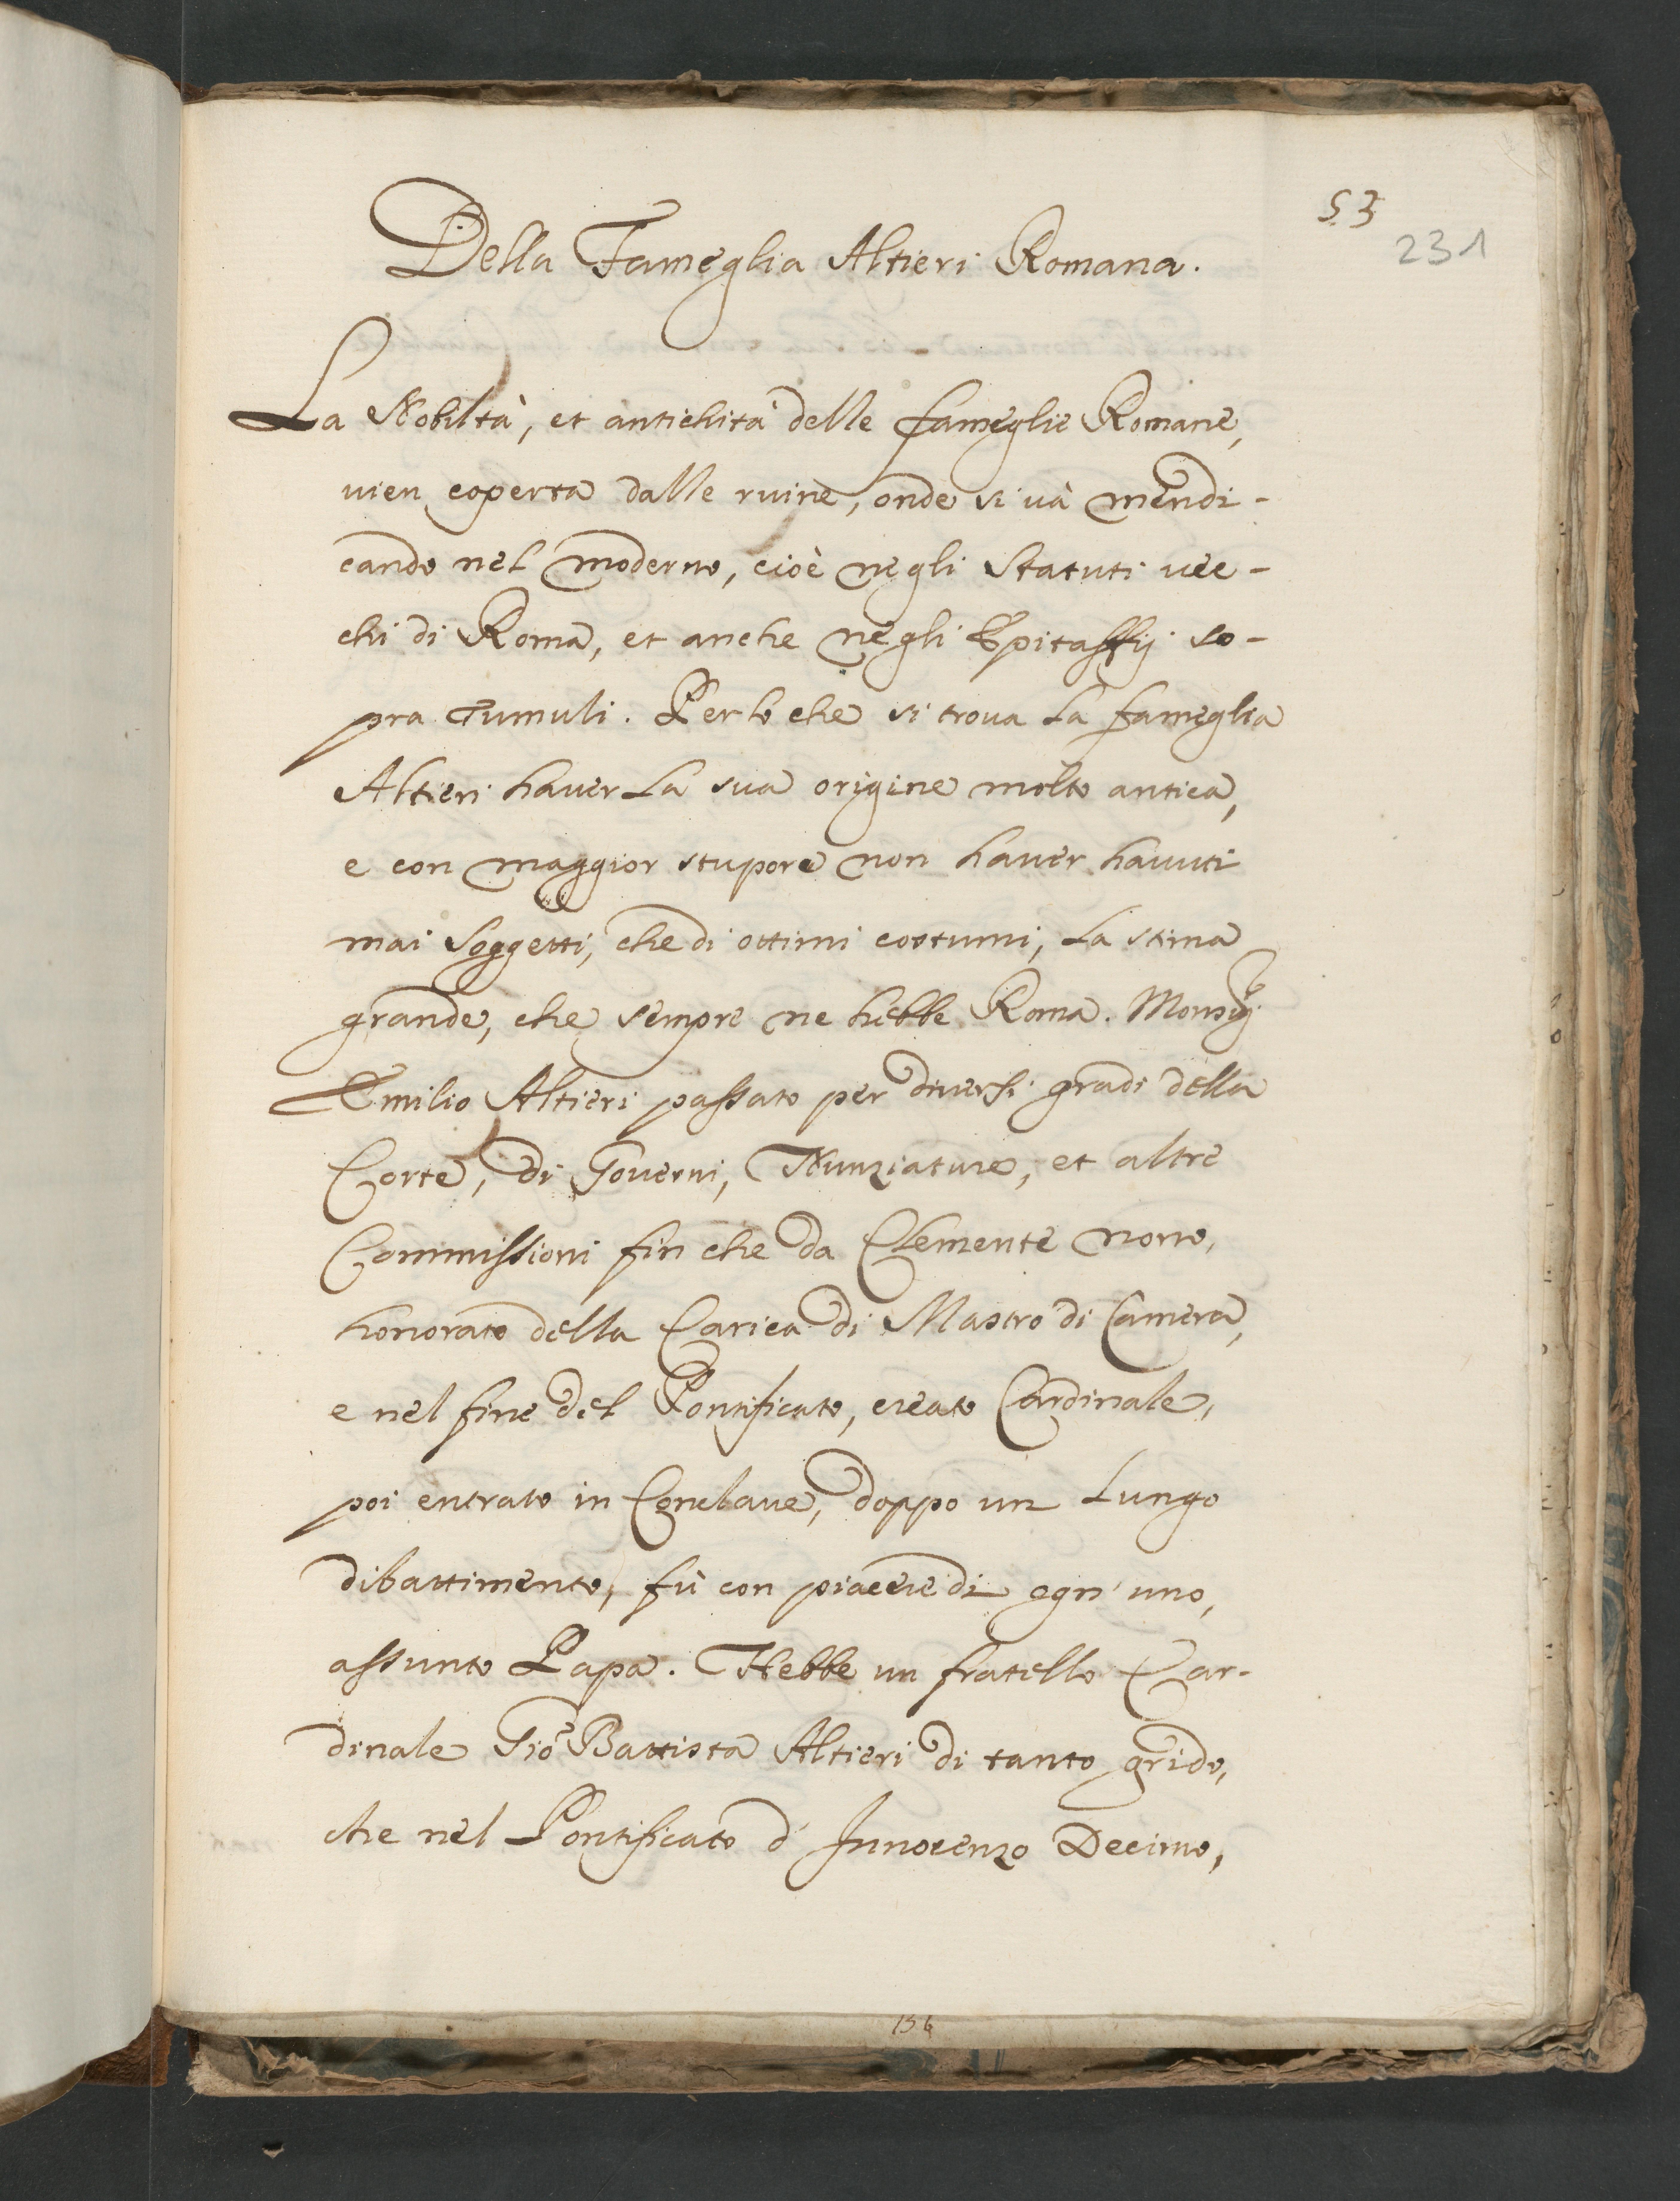 53
231
Della Fameglia Altieri Romana.
La Nobiltà, et antichità delle fameglie Romane,
vien coperta dalle ruine, onde si và mendi-
cando nel moderno, cioè negli Statuti vec-
chi di Roma, et anche negli Epitaffij so-
pra Tumuli. Perlo che si trova La fameglia
Altieri haver La sua origine molto antica,
e con maggior stupore non haver havuti
mai Soggetti, che di ottimi costumi, La stima
grande, che sempre ne hebbe Roma. Monsig.
Emilio Altieri passato per diversi gradi della
Corte, di Governi, Nunziature, et altre
Commissioni fin che da Clemente nono,
honorato della Carica di Mastro di Camera,
e nel fine del Pontificato, creato Cardinale,
poi entrato in Conclave, doppo un Lungo
dibattimento, fù con piacere di ogn'uno,
assunto Papa. Hebbe un fratello Car-
dinale Gio Battista Altieri di tanto grido,
che nel Pontificato d'Innocenzo Decimo,
156